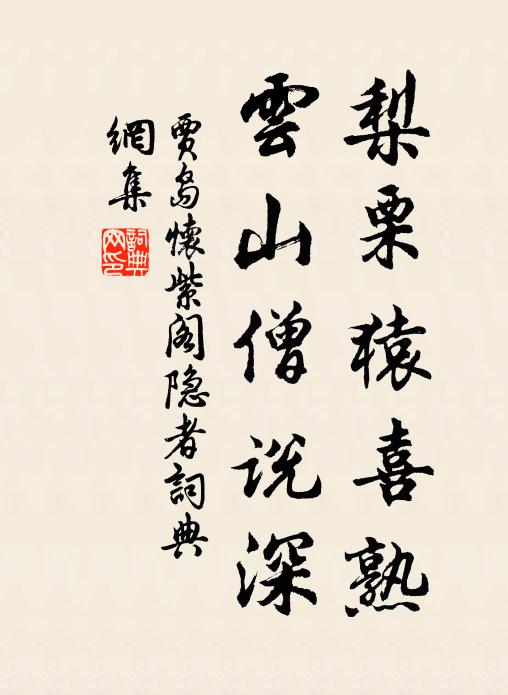 梨栗猿喜熟
雲山僧说深
賈島懐紫阁隐者詞典
網集
詞典
网印